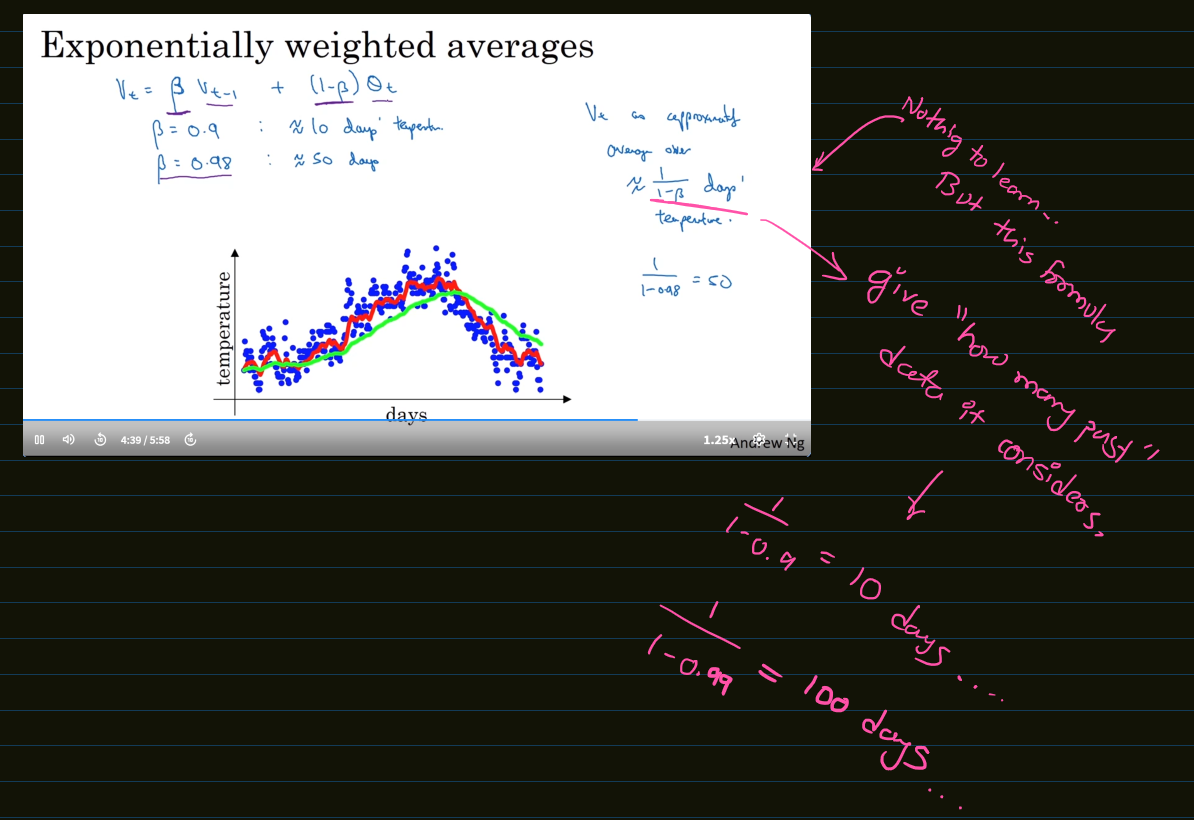 Exponentially weighted averages
Vt = β Vt-1 + (1-β) θt
β = 0.9 : ≈ 10 days'
β = 0.98 : ≈ 50 days
Vt as approximately
average over
≈ 1/(1-β) days'
temperature.
1/(1-0.98) = 50
temperature
days
4:39 / 5:58
1.25x
Andrew Ng
Nothig to learn..
But this formuly
give "how many past"
data it considers.
1/(1-0.9) = 10 days....
1/(1-0.99) = 100 days...